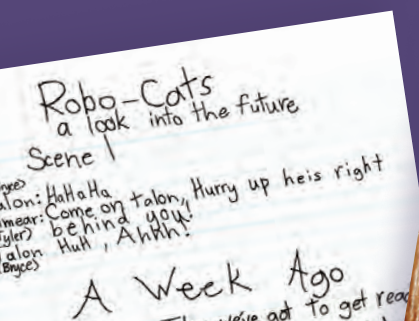 Robo-Cats
a look into the future
Scene 1
yce)
alon: HaHaHa
mear: Come on talon, Hurry up heis right
yler) behind you!
alon Huh, Ahhh!
Bryce)
A Week Ago
we've got to get read